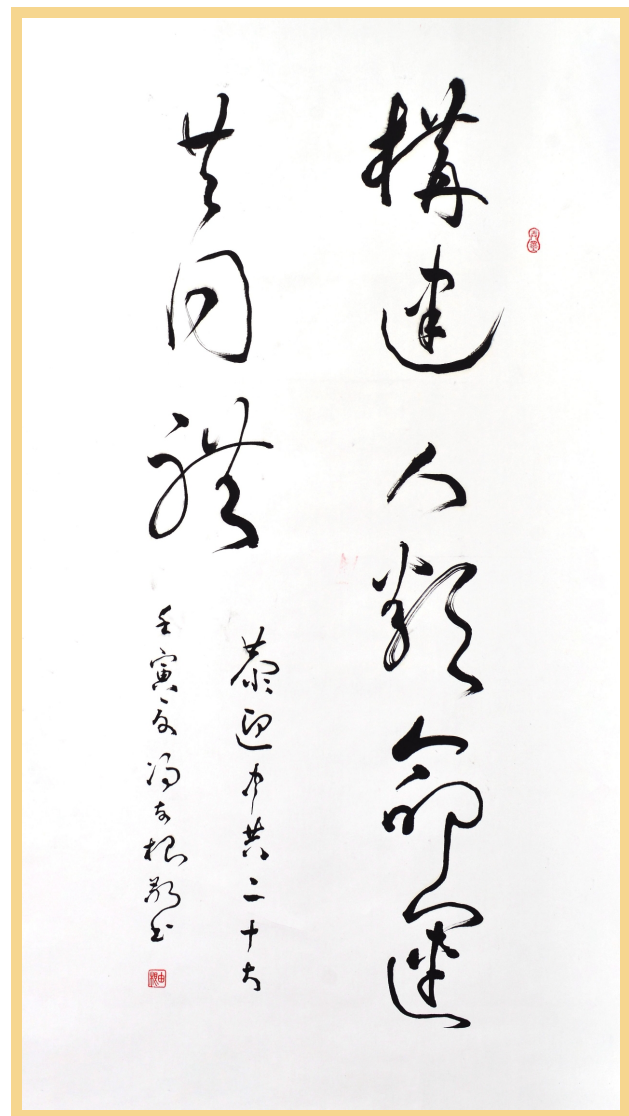 構建人類命運
共同體
恭迎中共二十大
壬寅夏馮友根敬書